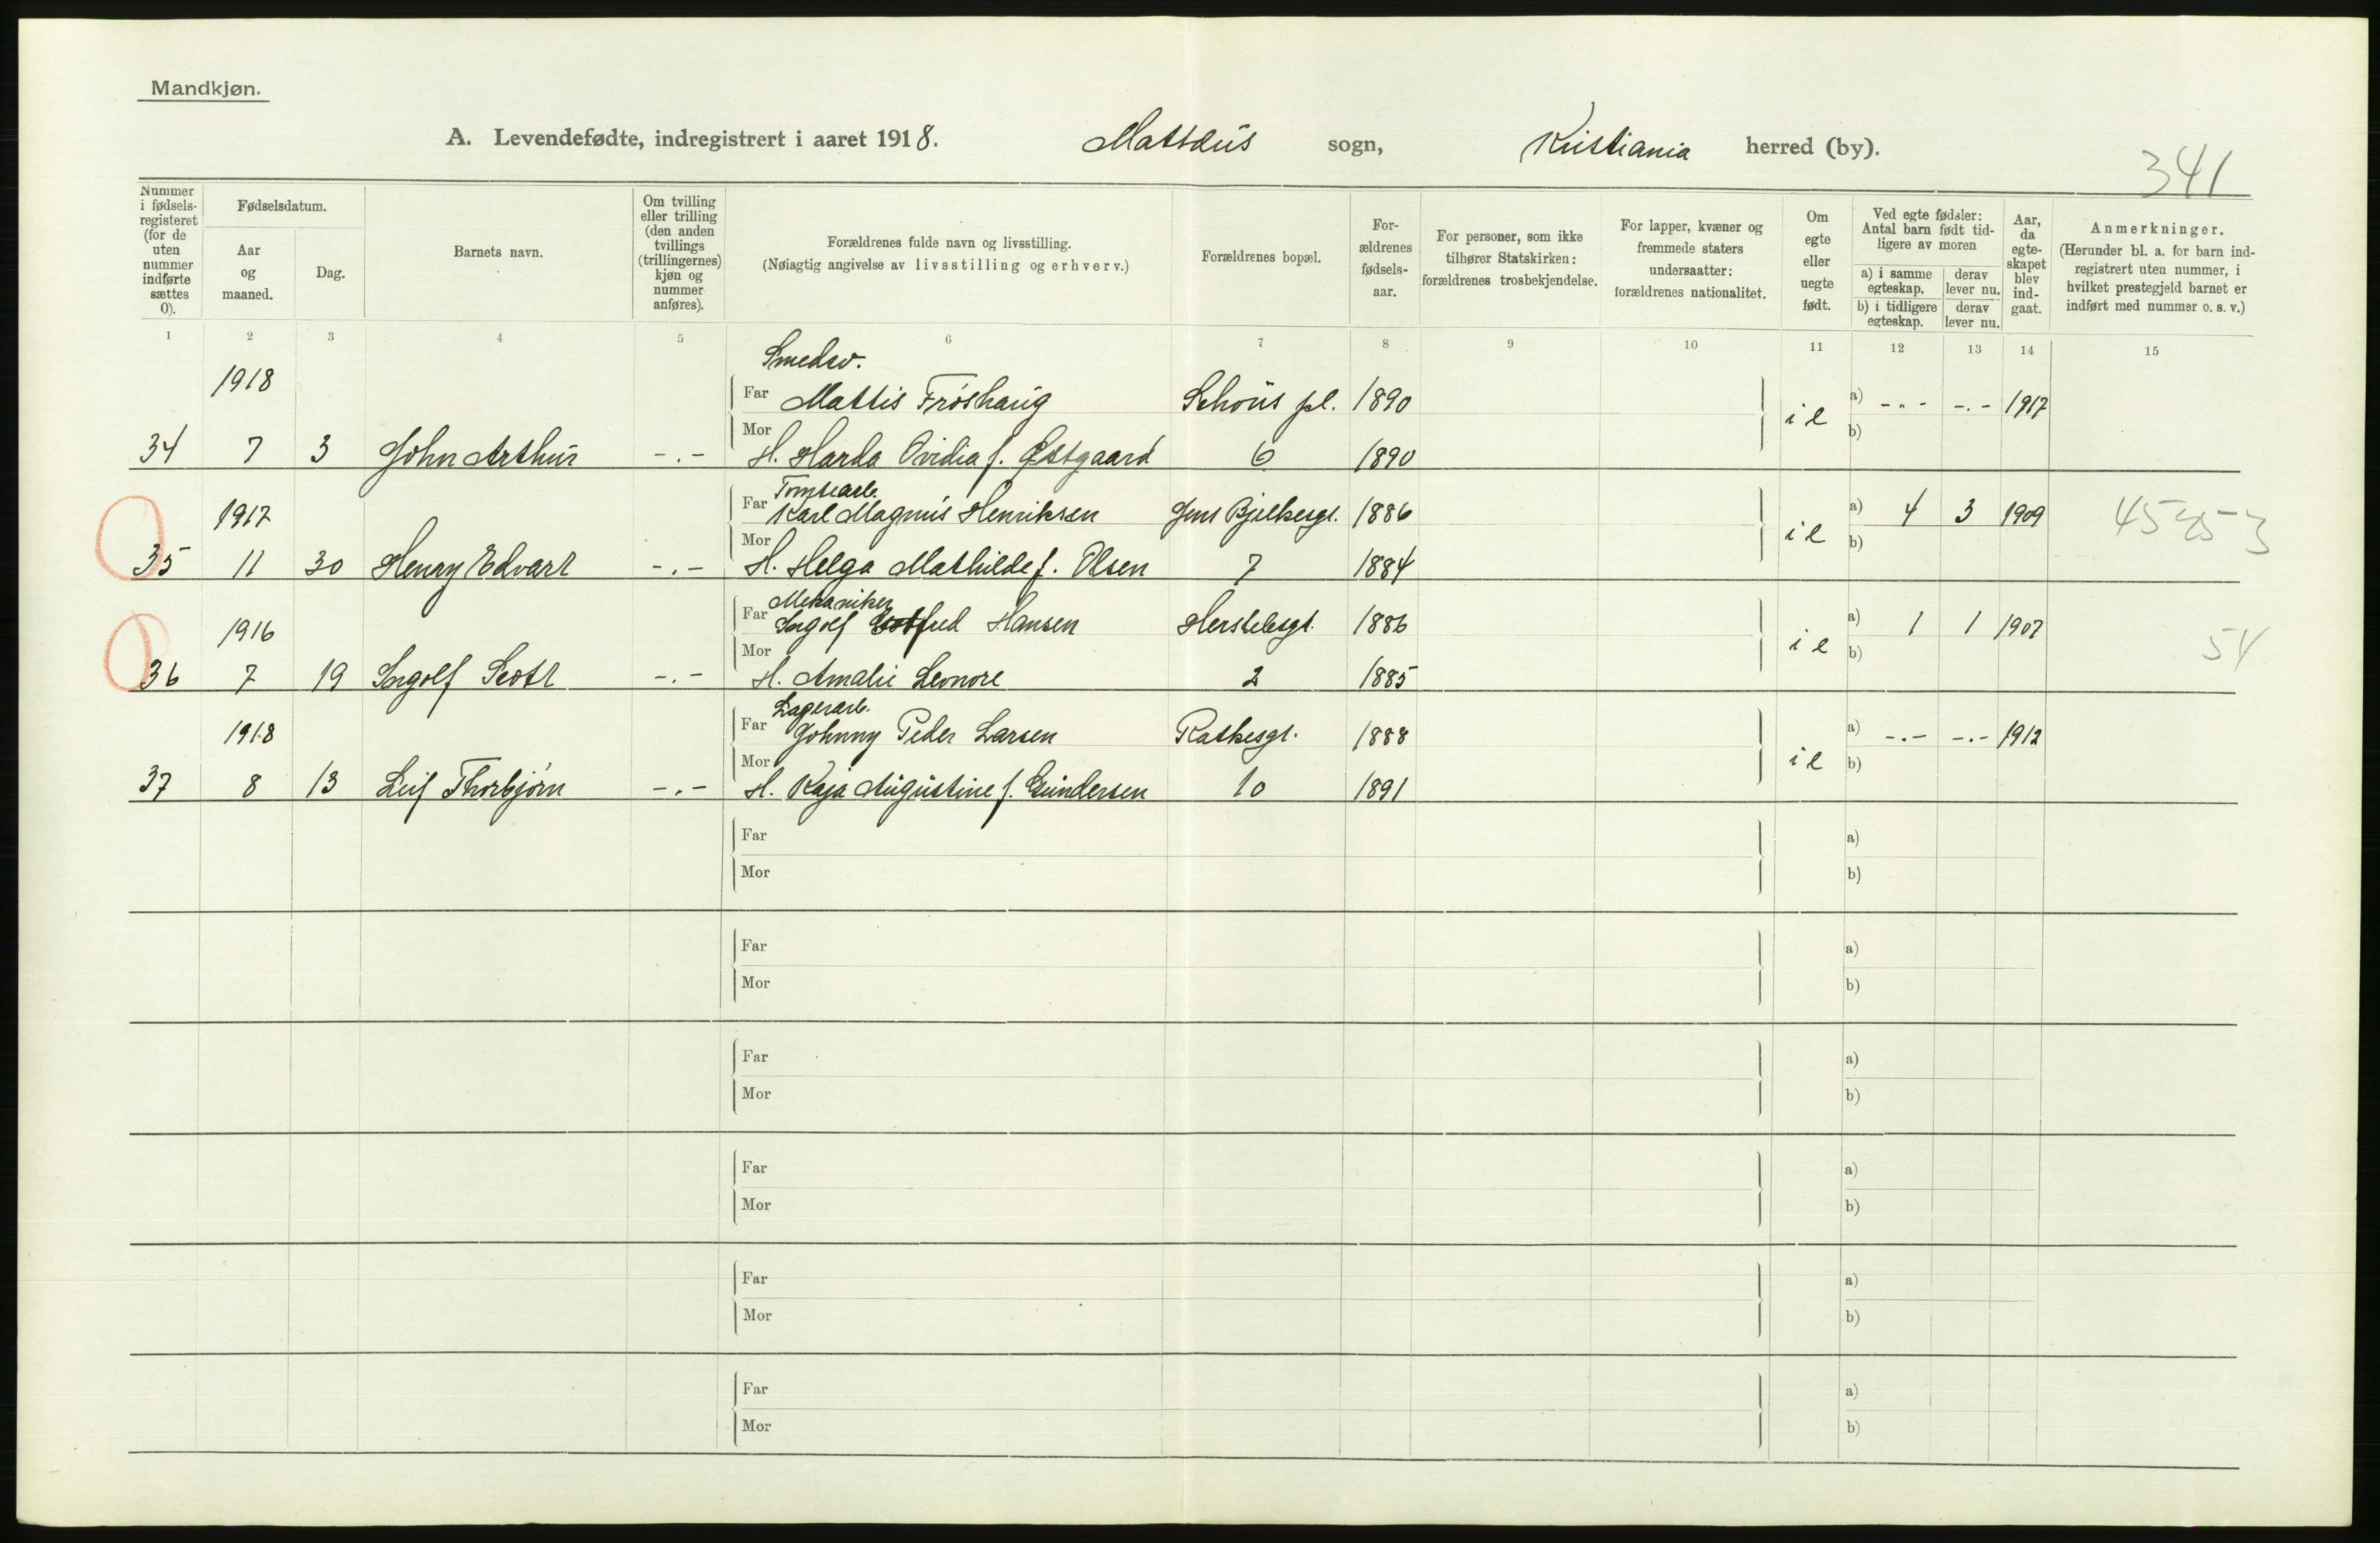 Mandkjøn.
A. Levendefødte, indregistrert i aaret 1918. Mattæus sogn, Kristiania herred (by).
341
Nummer i fødsels-registeret (for de uten nummer indførte sættes 0).
Fødselsdatum.
Aar og maaned.
Dag.
Barnets navn.
Om tvilling eller trilling (den anden tvillings (trillingernes) kjøn og nummer anføres).
Forældrenes fulde navn og livsstilling.
(Nøiagtig angivelse av livsstilling og erhverv.)
Forældrenes bopæl.
For-ældrenes fødsels-aar.
For personer, som ikke tilhører Statskirken: forældrenes trosbekjendelse.
For lapper, kvæner og fremmede staters undersaatter: forældrenes nationalitet.
Om egte eller uegte født.
Ved egte fødsler: Antal barn født tid-ligere av moren
a) i samme egteskap.
derav lever nu.
b) i tidligere egteskap.
derav lever nu.
Aar, da egte-skapet blev ind-gaat.
Anmerkninger.
(Herunder bl. a. for barn ind-registrert uten nummer, i hvilket prestegjeld barnet er indført med nummer o. s. v.)
1 2 3 4 5 6 7 8 9 10 11 12 13 14 15
Smedsv.
1918 Far Mattis Frøshaug Schous pl. 1890 i e a) -"- -.- 1917
34 7 3 John Arthur -.- Mor H. Harda Ovidia f. Østgaard 6 1890 b)
Tomtearb.
1917 Far Karl Magnus Henriksen Jens Bjelkesgt. 1886 i e a) 4 3 1909
35 11 30 Henry Edvart -.- Mor H. Helga Mathilde f. Olsen 7 1884 b)
Mekaniker
1916 Far Ingolf Gotfred Hansen Herslebsgt. 1886 i e a) 1 1 1907 54
36 7 19 Ingolf Scott -.- Mor H. Amalie Leonore 2 1885 b)
Lagerarb.
1918 Far Johnny Peder Larsen Rathkesgt. 1888 i e a) -.- -.- 1912
37 8 13 Leif Thorbjørn -.- Mor H. Kaja Augustine f. Gundersen 10 1891 b)
Far a)
Mor b)
Far a)
Mor b)
Far a)
Mor b)
Far a)
Mor b)
Far a)
Mor b)
Far a)
Mor b)